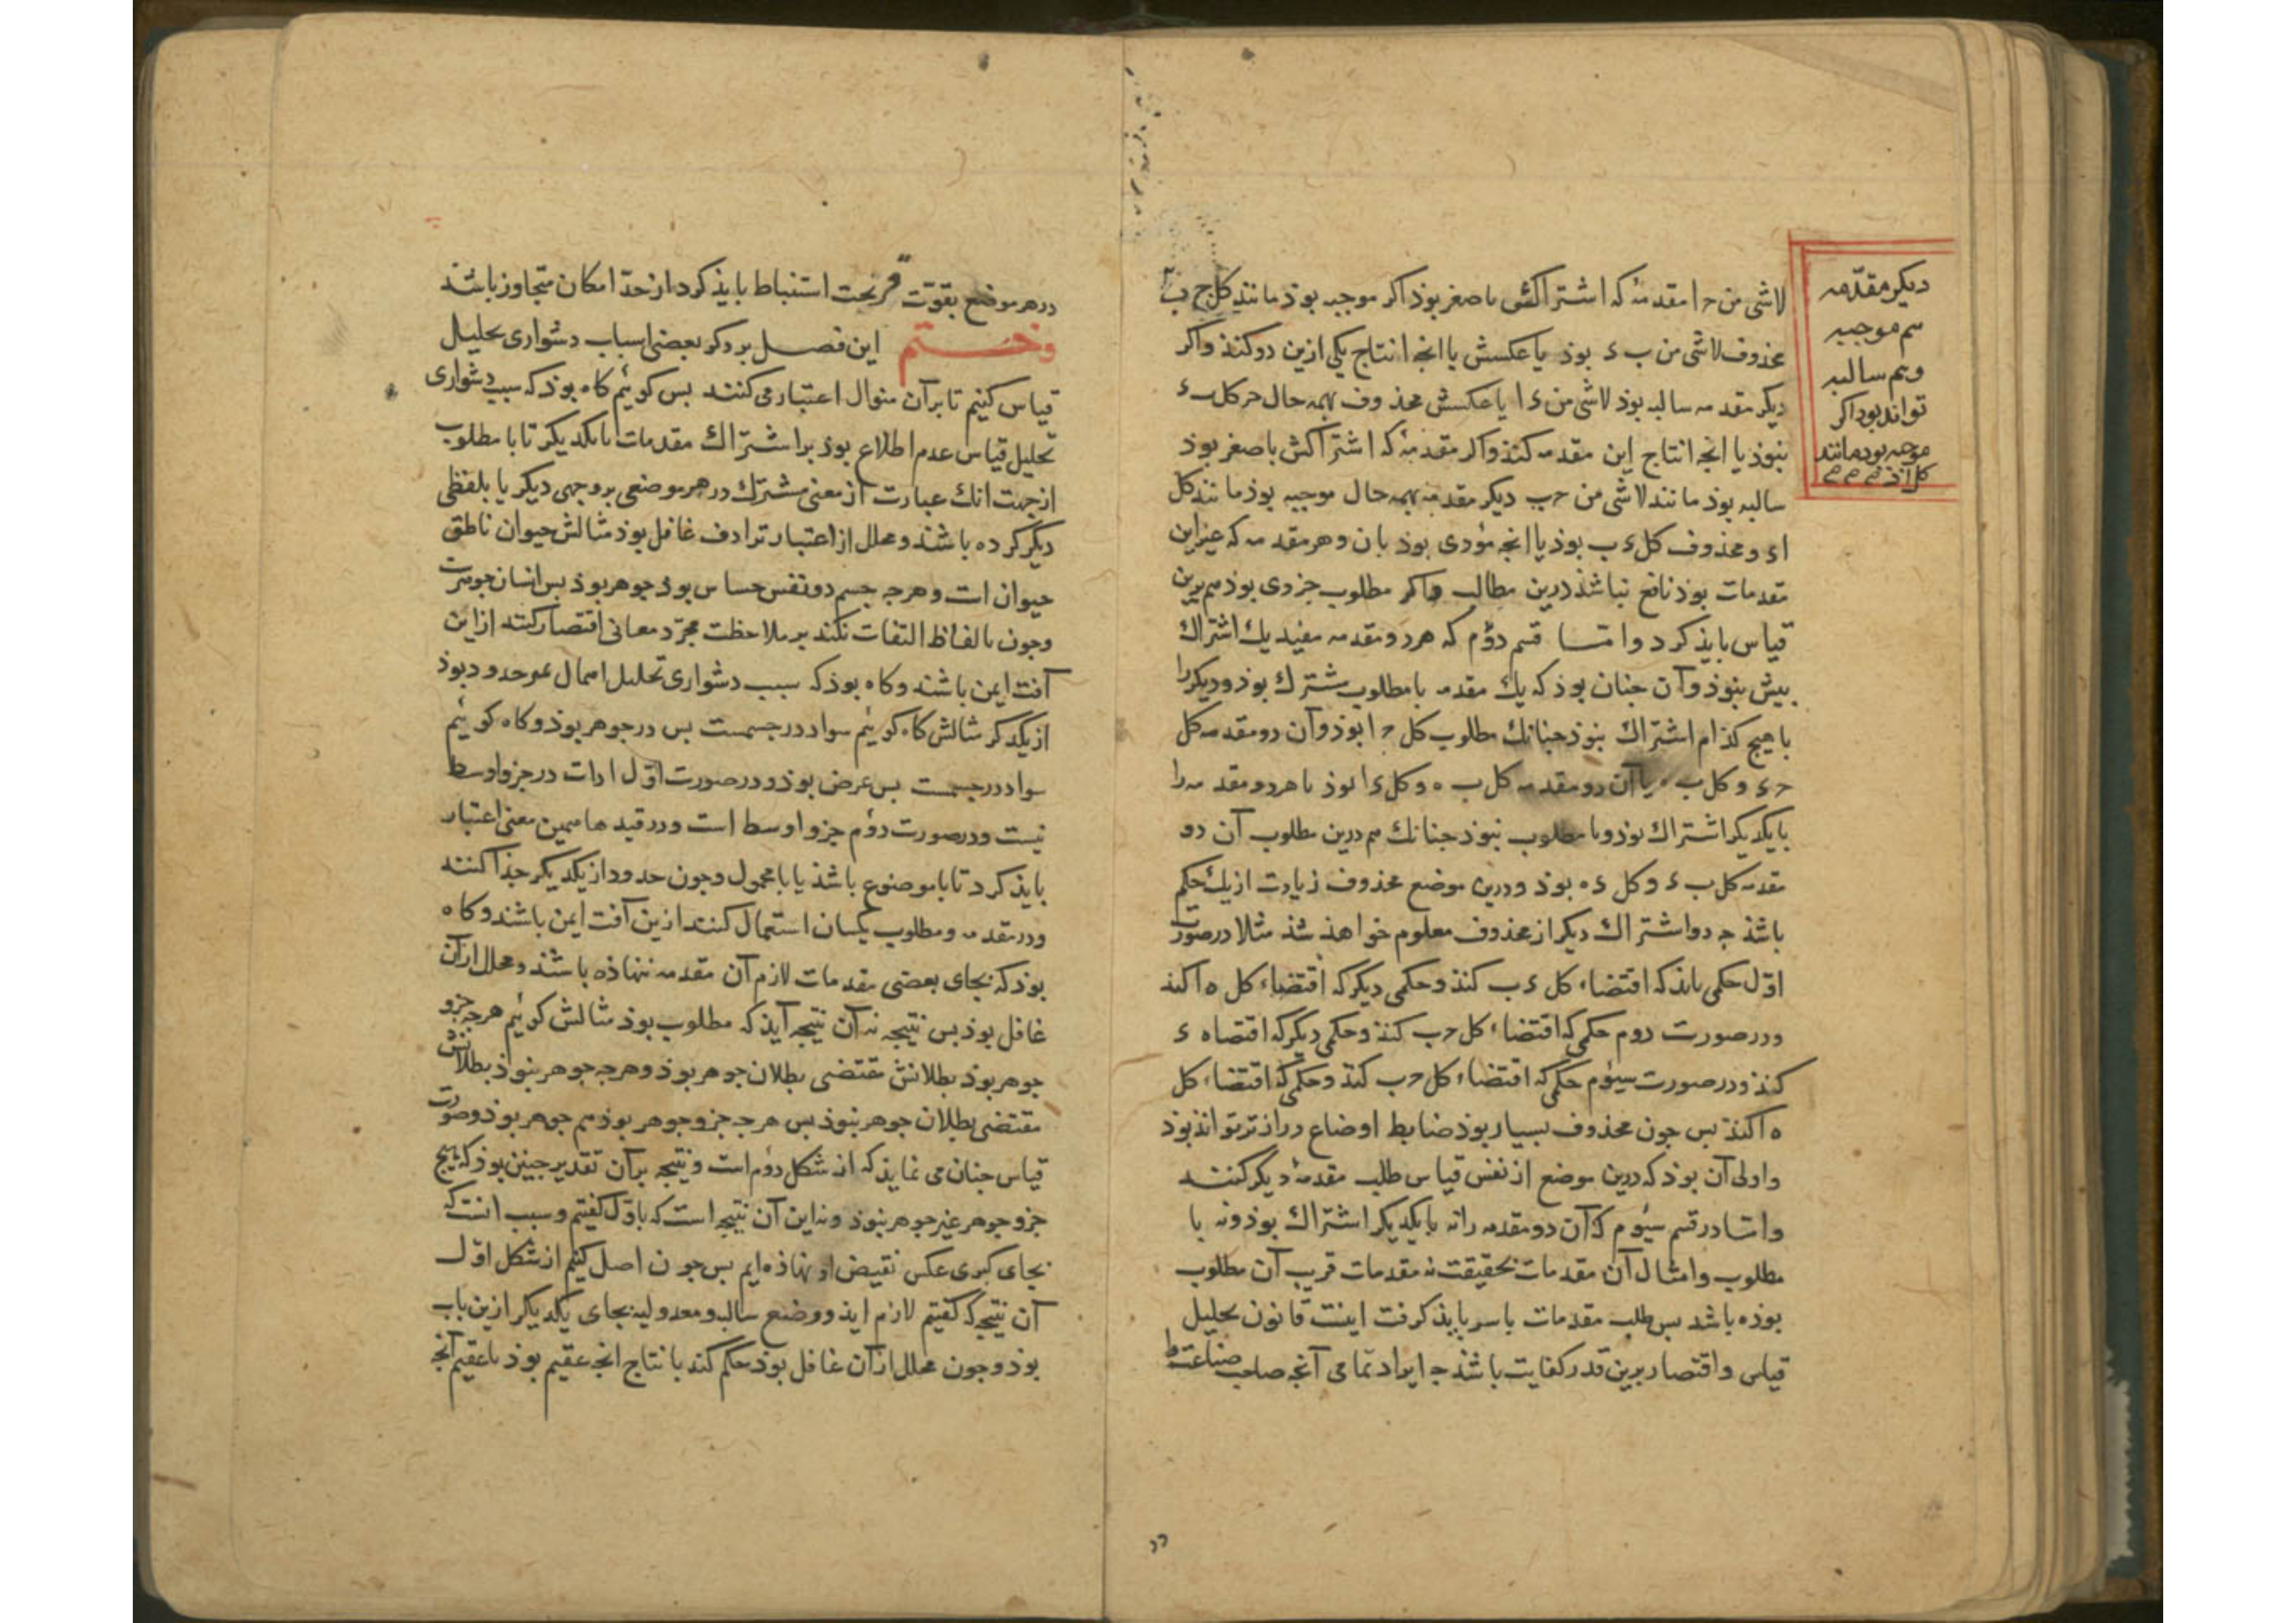 لاشی من ح ا مقدمهٔ که اشتراکش باصغر بوذ اکر موجبه بوذ مانند کل ج ب
محذوف لاشی من ب ء بوذ یا عکسش یا انجه انتاج یکی ازین دو کنذ واکر
دیکر مقدمه سالبه بوذ لاشی من ء ا یا عکسش محذوف بهمه حال حر کل ب ء
نبوذ یا انجه انتاج این مقدمه کنذ واکر مقدمهٔ که اشتراکش باصغر بوذ
سالبه بوذ مانند لاشی من ح ب دیکر مقدمه بهمه حال موجبه بوذ مانند کل
ا ء و محذوف کل ء ب بوذ یا انجه مؤدی بوذ بان وهر مقدمه که غیر این
مقدمات بوذ نافع نباشذ درین مطالب واکر مطلوب جزوی بوذ هم برین
قیاس بایذ کرد واما قسم دؤم که هر دو مقدمه مفید یک اشتراک
بیش نبوذ وآن جنان بوذ که یک مقدمه با مطلوب مشترک بوذ ودیکر را
با هیج کذام اشتراک نبوذ جنانک مطلوب کل ح ا بوذ وآن دو مقدمه کل
ح ء و کل ب ه یا آن دو مقدمه کل ب ه و کل ء ا بوذ یا هر دو مقدمه را
بایکدیکر اشتراک بوذ وبا مطلوب نبوذ جنانک هم درین مطلوب آن دو
مقدمه کل ب ء و کل ء ه بوذ ودرین موضع محذوف زیادت از یک حکم
باشذ جه دو اشتراک دیکر از محذوف معلوم خواهذ شذ مثلا در صورت
اوّل حکمی بایذ که اقتضاء کل ء ب کنذ وحکمی دیکر که اقتضاء کل ه ا کنذ
ودر صورت دوم حکمی که اقتضاء کل ح ب کنذ وحکمی دیکر که اقتضا ه ء
کنذ ودر صورت سیؤم حکمی که اقتضاء کل ح ب کنذ وحکمی که اقتضاء کل
ه ا کنذ بس جون محذوف بسیار بوذ ضابط اوضاع دراز تر تواند بوذ
واولی آن بوذ که درین موضع از نفس قیاس طلب مقدمهٔ دیکر کننذ
واما در قسم سیؤم که آن دو مقدمه را نه بایکدیکر اشتراک بوذ ونه با
مطلوب وامثال آن مقدمات بحقیقت نه مقدمات قریب آن مطلوب
بوذه باشد بس طلب مقدمات باسر بایذ کرفت اینست قانون تحلیل
قیاس واقتصار برین قدر کفایت باشذ جه ایراد تمامی آنجه صاحب صناعت را
دیکر مقدّمه
هم موجبه
وهم سالبه
تواند بود اکر
موجبه بود مانند
در هر موضع بقوّت قریحت استنباط بایذ کرد از حدّ امکان متجاوز باشذ
وختم این فصل بر ذکر بعضی اسباب دشواری تحلیل
قیاس کنیم تا برآن منوال اعتبار می کنند بس کوئیم کاه بوذ که سبب دشواری
تحلیل قیاس عدم اطلاع بوذ بر اشتراک مقدمات بایکدیکر تا با مطلوب
از جهت انک عبارت از معنی مشترک در هر موضعی بروجهی دیکر یا بلفظی
دیکر کرده باشند ومحلل از اعتبار ترادف غافل بوذ مثالش حیوان ناطق
حیوان است وهرجه جسم ذو نفس حساس بوذ جوهر بوذ بس انسان جوهرست
وجون بالفاظ التفات نکند بر ملاحظت مجرّد معانی اقتصار کنند ازین
آفت ایمن باشند وکاه بوذ که سبب دشواری تحلیل اهمال تمیز حدود بوذ
از یکدکر مثالش کاه کوئیم سواد در جسمست بس در جوهر بوذ وکاه کوئیم
سواد در جسمست بس عرض بوذ ودر صورت اوّل ادات در جزو اوسط
نیست ودر صورت دؤم جزو اوسط است ودر قیدها همین معنی اعتبار
بایذ کرد تا با موضوع باشذ یا با محمول وجون حدود از یکدیکر جذا کنند
ودر مقدمه ومطلوب یکسان استعمال کنند ازین آفت ایمن باشند وکاه
بوذ که بجای بعضی مقدمات لازم آن مقدمه نهاذه باشذ ومحلل ازآن
غافل بوذ بس نتیجه نه آن نتیجه آیذ که مطلوب بوذ مثالش کوئیم هرجه جزو
جوهر بوذ بطلانش مقتضی بطلان جوهر بوذ وهرجه جوهر نبوذ بطلانش
مقتضی بطلان جوهر نبوذ بس هرجه جزو جوهر بوذ هم جوهر بوذ وصورت
قیاس جنان می نمایذ که از شکل دؤم است ونتیجه برآن تقدیر جنین بوذ که هیج
جزو جوهر غیر جوهر نبوذ ونه این آن نتیجه است که باوّل کفتیم وسبب انست که
بجای کبری عکس نقیض او نهاذه ایم بس جون اصل کنیم از شکل اوّل
آن نتیجه که کفتیم لازم ایذ ووضع سالبه ومعدولیه بجای یکدیکر ازین باب
بوذ وجون محلل ازآن غافل بوذ حکم کند بانتاج انجه عقیم بوذ یا عقیم آنجه